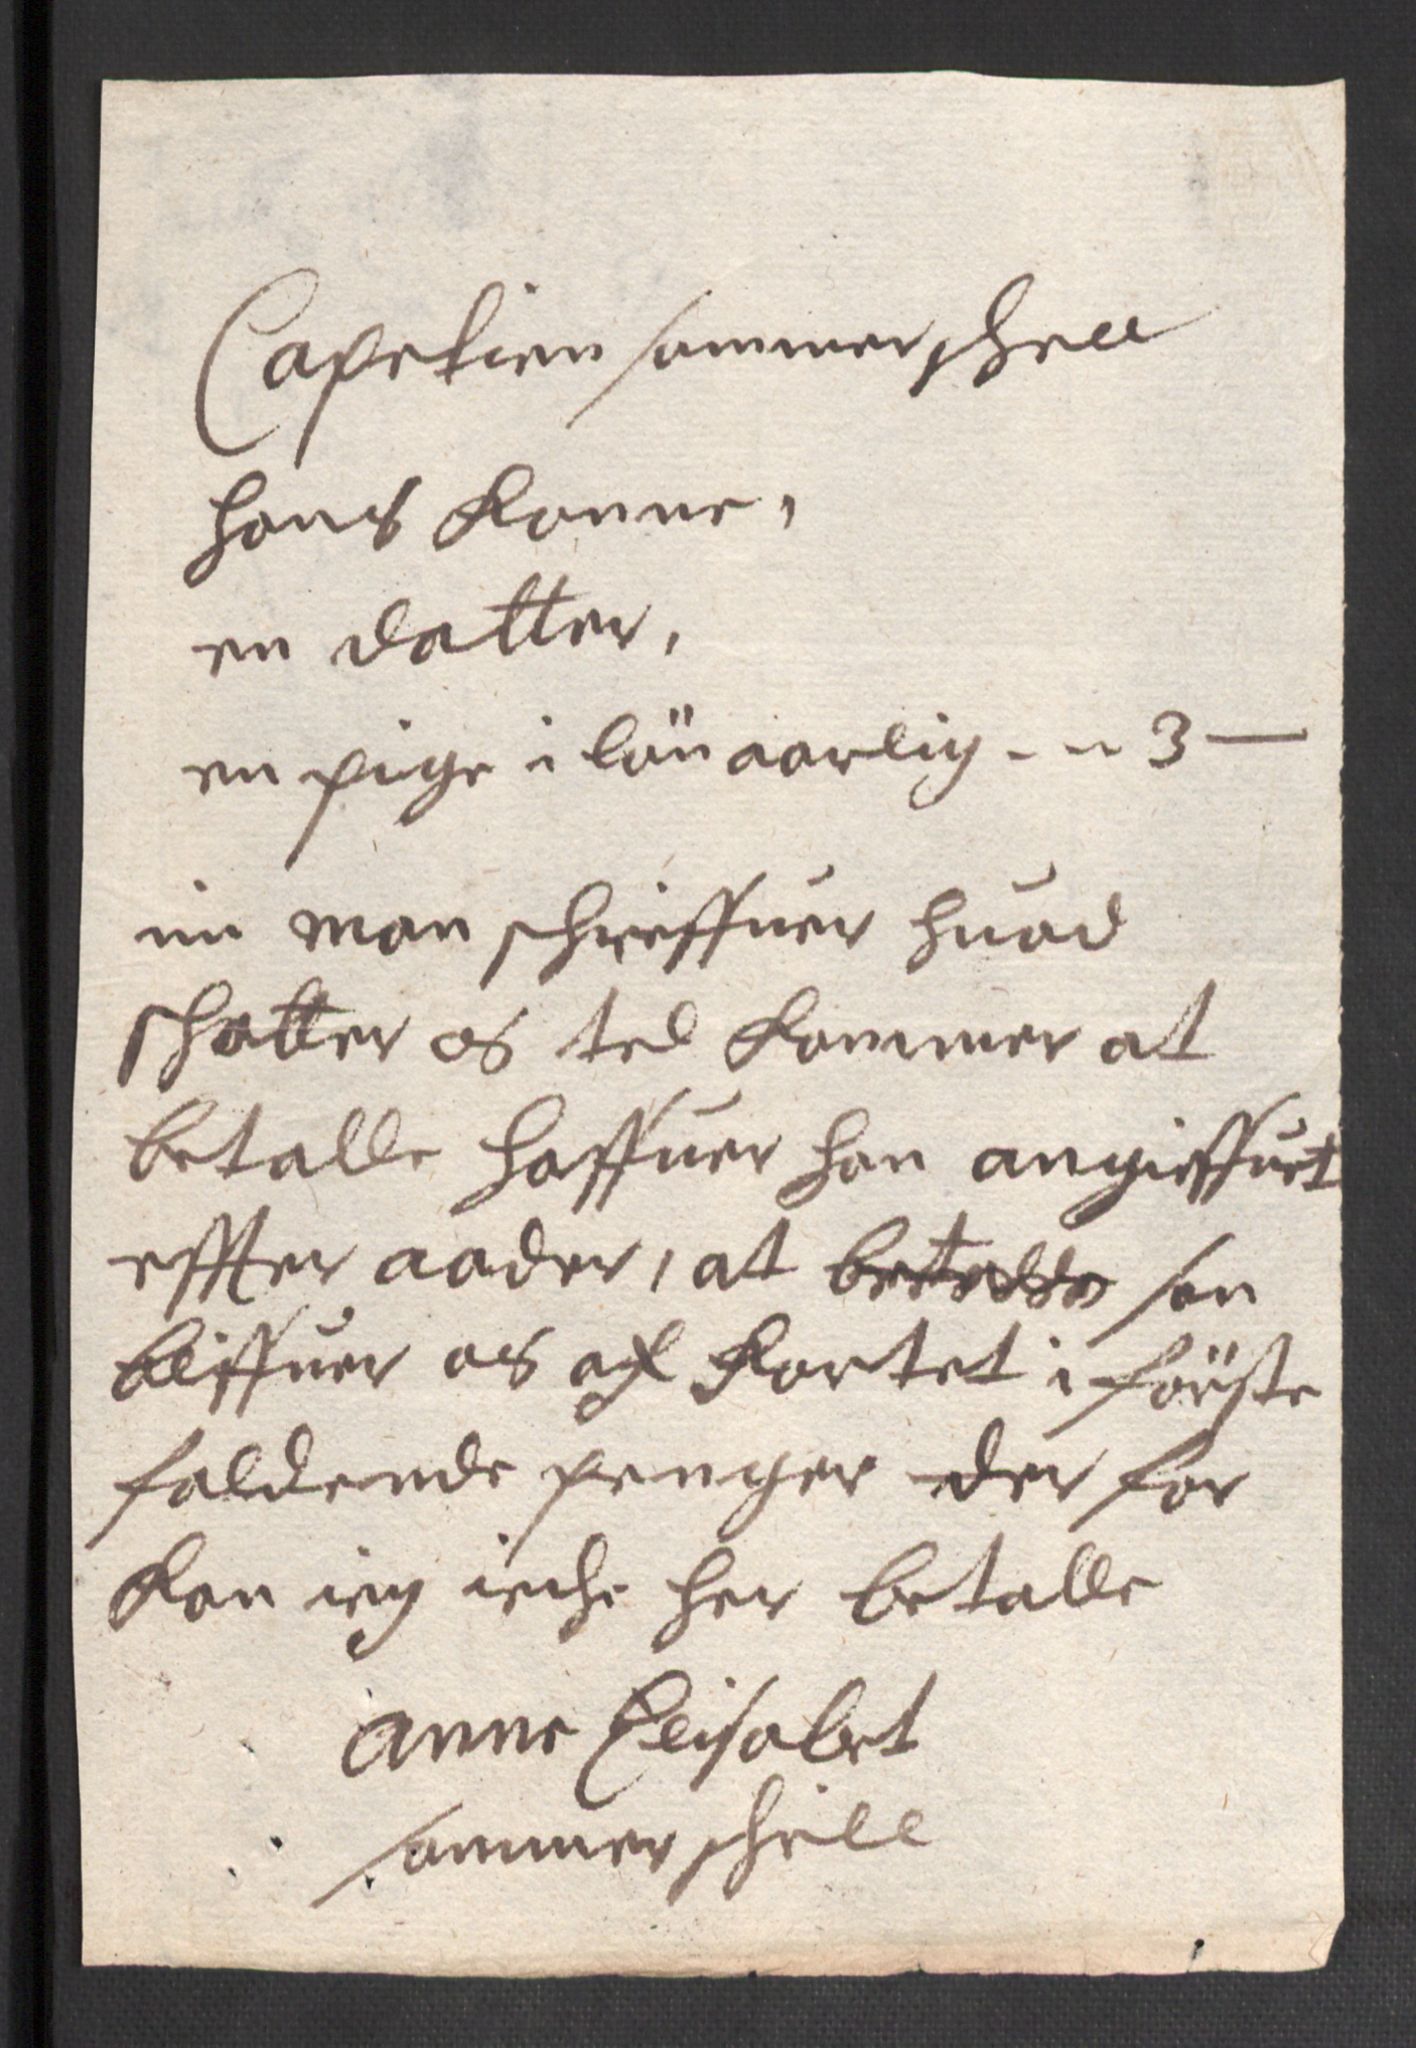 Capetien sommerschell
hans Konne,
en datter,
en pige i lön aarlig - - 3 —
min man schreffuer huad
schatter os tel Kommer at
betalle haffuer han angieffuet
effter aader, at betalle son
bliffuer os af Kortet i förste
faldende penger der for
Kan ieg iche her betalle
anne Elisabet
sommerschell